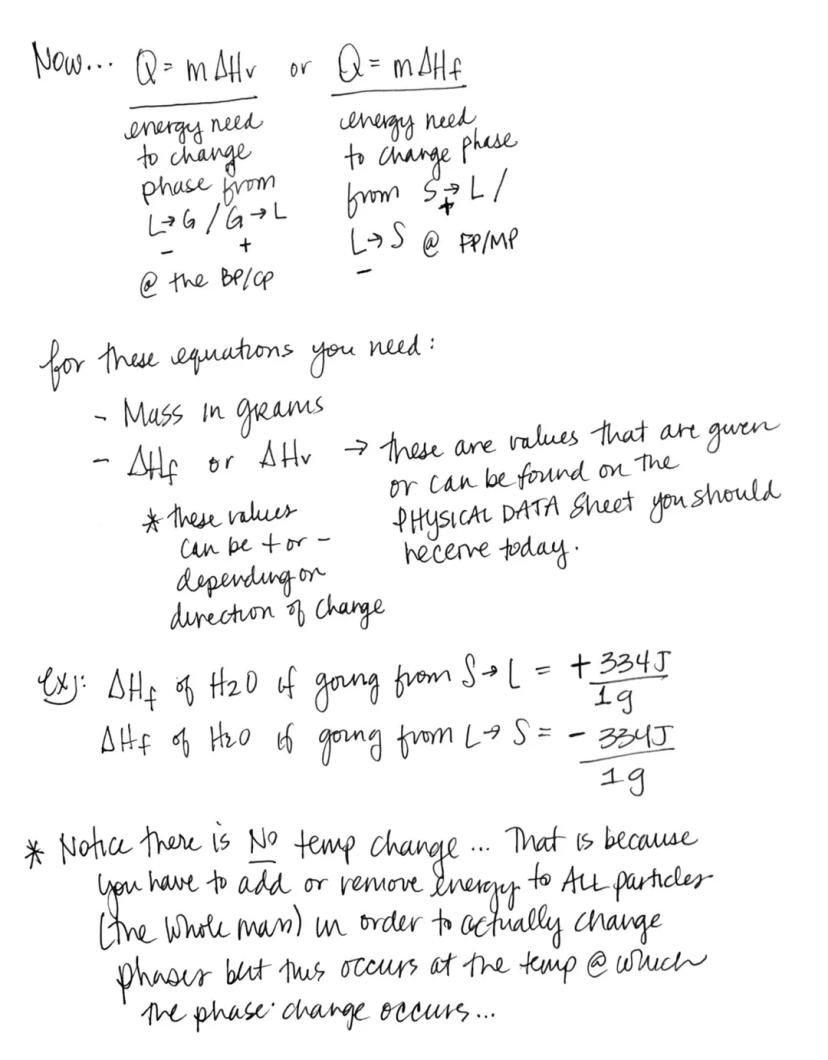 Now... Q = m ΔHv or Q = m ΔHf
energy need
to change
phase from
L→G / G→L
- +
@ the BP/CP
energy need
to change phase
from S→L /
+
L→S @ FP/MP
-
for these equations you need:
- Mass in grams
- ΔHf or ΔHv → these are values that are given
or can be found on the
PHYSICAL DATA Sheet you should
receive today.
* these values
can be + or -
depending on
direction of change
Ex): ΔHf of H2O if going from S→L = + 334J
1g
ΔHf of H2O if going from L→S = - 334J
1g
* Notice there is No temp change... That is because
you have to add or remove energy to ALL particles
(the whole mass) in order to actually change
phases but this occurs at the temp @ which
the phase change occurs...